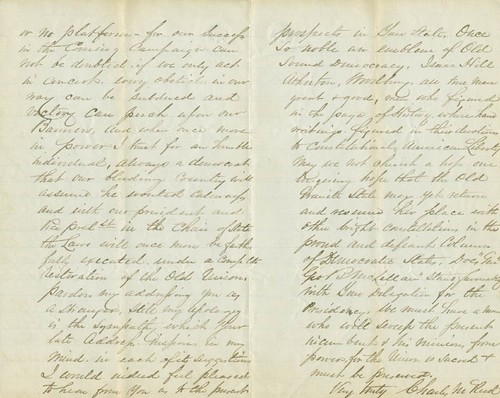 or no platform - for our success
in the Coming Campaign can
not be doubted, if we only act
in concert. every obstacle in our
way can be subdued and
Victory can perch upon our
Banners, And when once more
in power I trust for an humble
individual, always a democrat
that our bleeding Country will
assume its wonted calmness
and with our president and
Vice Prest in the Chair of State
the Laws will once more be faith
fully executed under a complete
restoration of the Old Union.
pardon my addressing you as
a Stranger, Still my apology
is the Sympathy, which Your
late Address inspires in my
mind in each of its suggestions
I would indeed feel pleased
to hear from You as to the present
prospects in Your State, Once
So noble an emblem of Old
Sound Democracy. Isaac Hill
Atherton, Woodbury, all true men
great & good, men who figured
in the page of History, whose
writings figured in their devotion
to Constitutional American Liberty
May we not cherish a hope one
hope that the Old
Granite State may yet return
and resume her place with
other bright constellations in the
proud and defiant Column
of Democratic States. Does Genl
Geo B McClellan Strike favorably
with Your Delegation for the
Presidency. We must have a man
who will sweep the present
incumbent & his minions from
power, for the Union is Sacred &
must be preserved.
Very truly Charles McReid